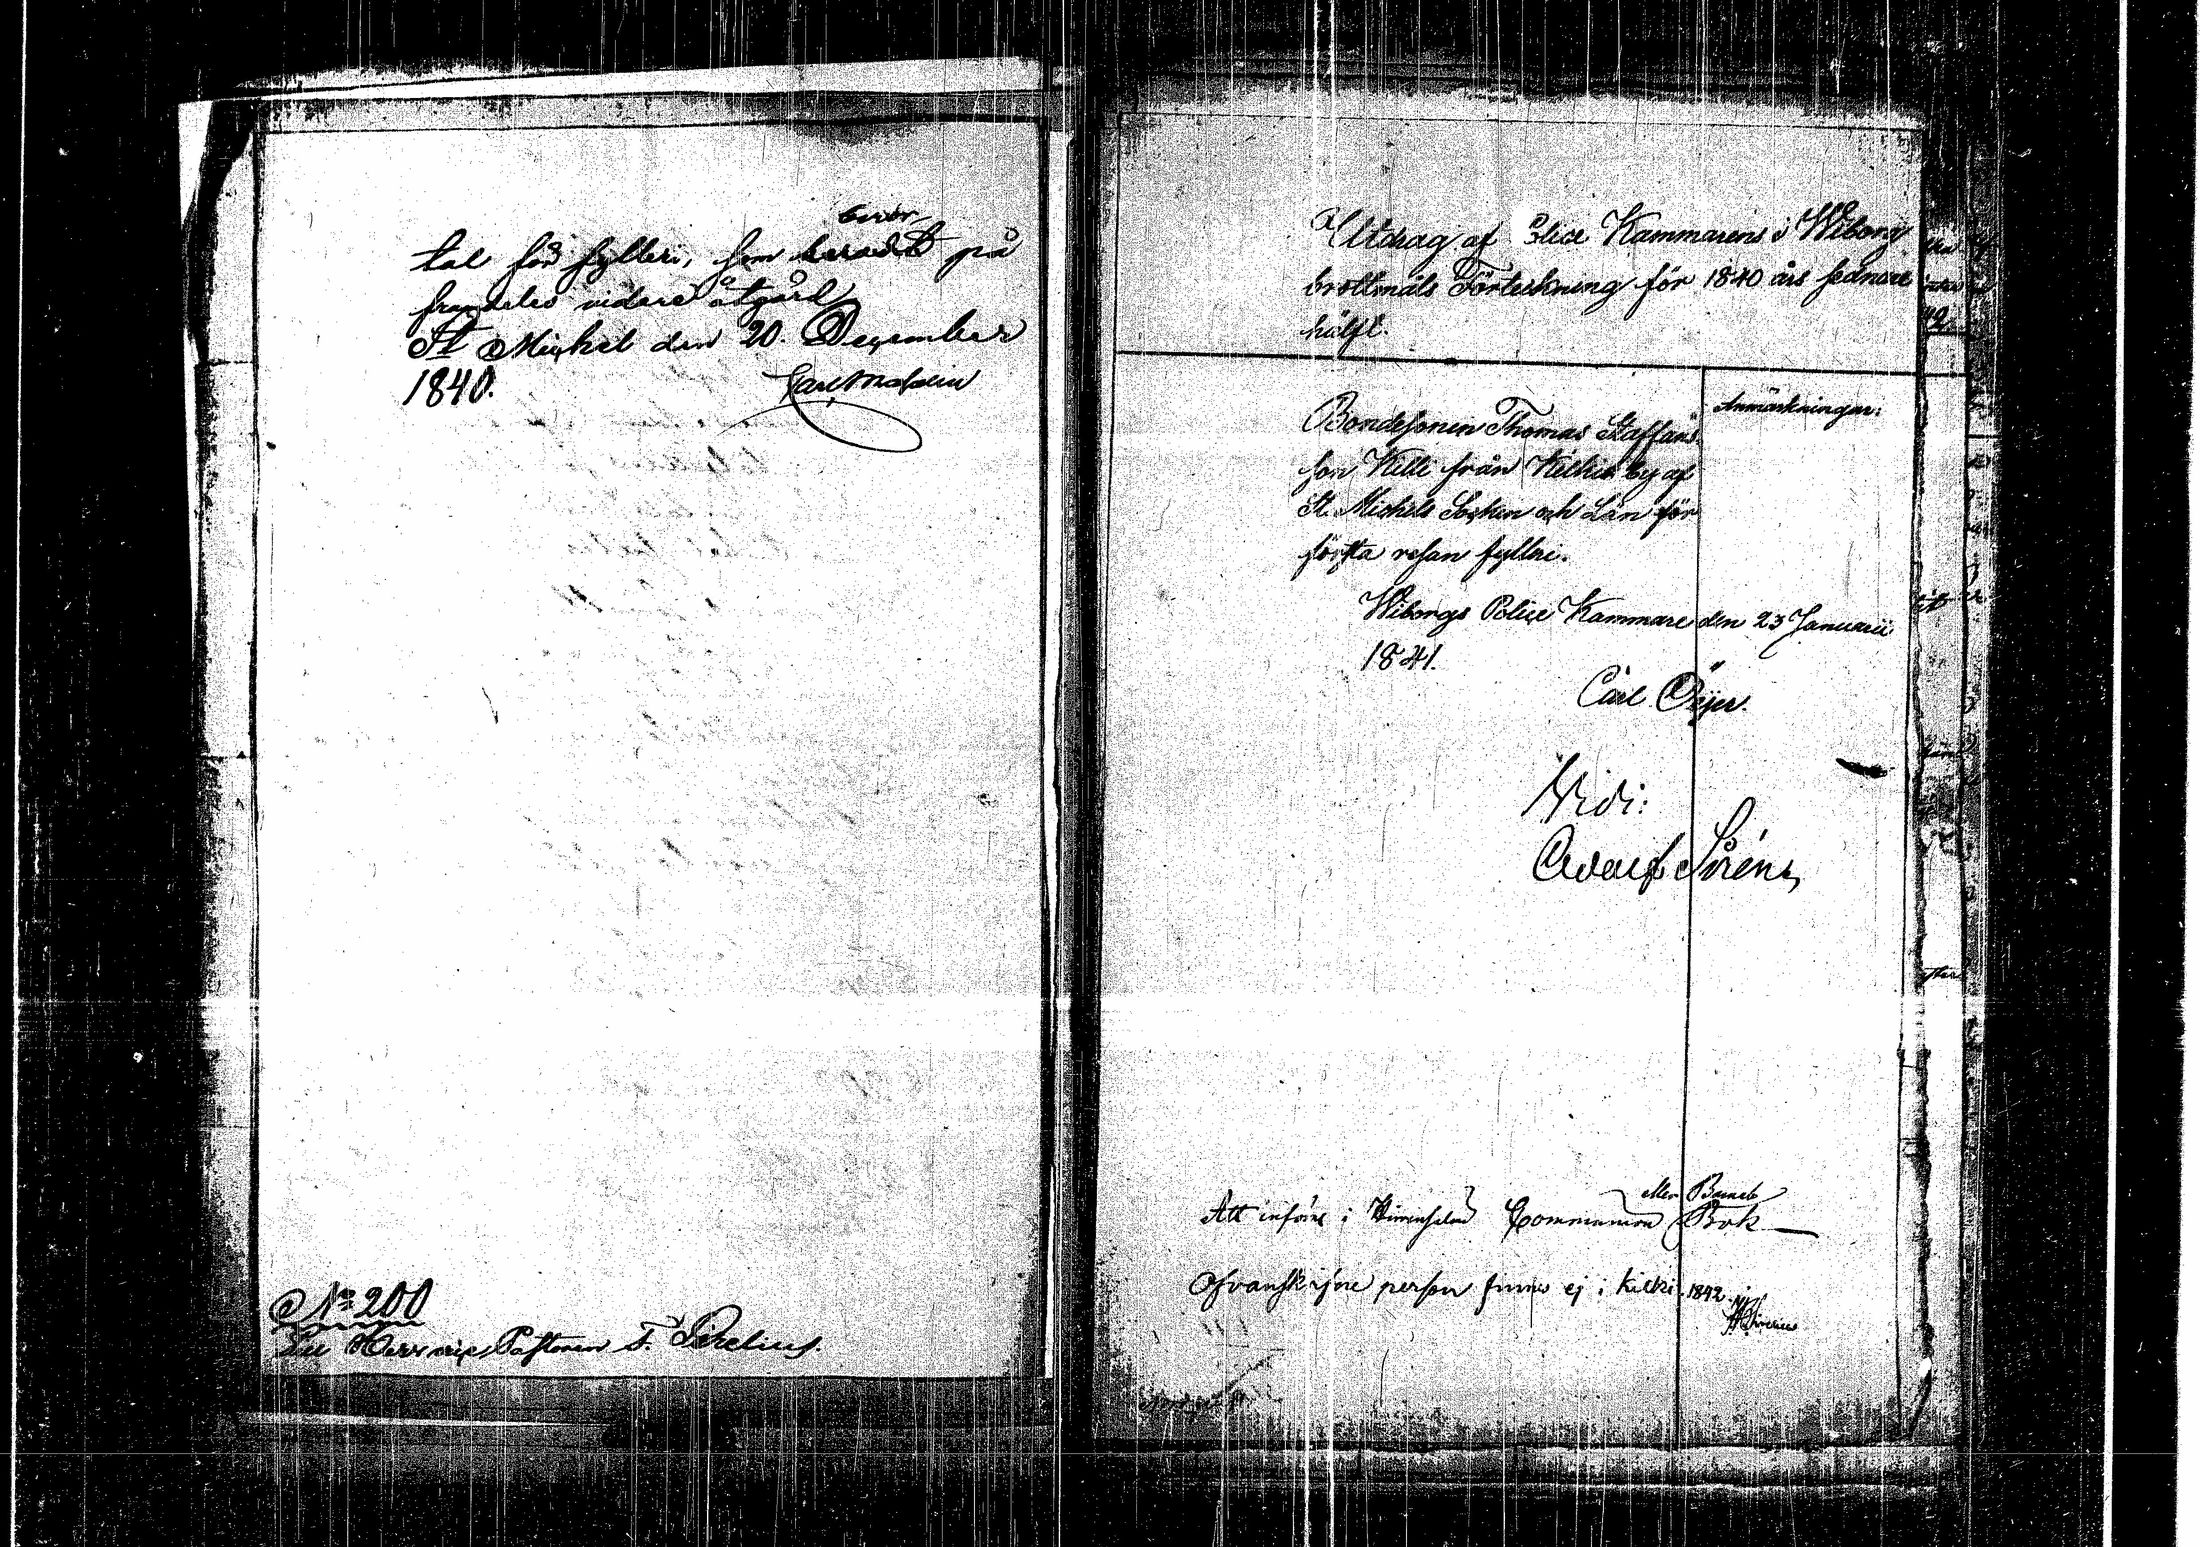 beror
tal för fylleri, som beradt på
framdeles vidare åtgärd
St Michel den 20. December
1840.
No 200
Herr vice Pastoren F. Perelius.
Utdrag af Police Kammarens i Wiborg
brottmåls Förteckning för 1840 års sednare
hälft.
Anmärkningar:
Bondesonen Thomas Staffans
son Killi från Kilkis by af
St. Michels Socken och Län för
första resan fylleri.
Wiborgs Police Kammare den 23 Januarii
1841.
Carl Öijer.
Vidi:
Adolf Sirén
eller Barnab
Att införas i Communion Bok
Ofvanskrifne person finnes ej i Kilki. 1842.